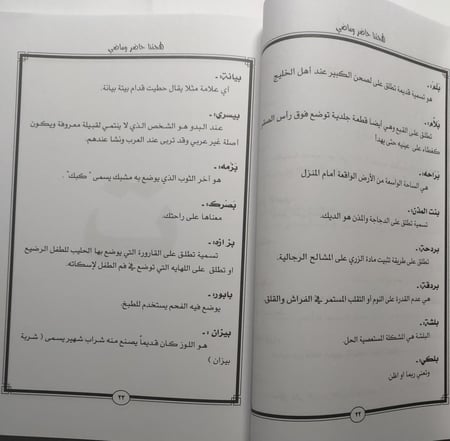 لهجتنا حاضر وماضي
بلم: -
هو تسمية قديمة تطلق على لصحن الكبير عند أهل الخليج
بلام: -
تطلق على القبع وهي أيضا قطعة جلدية توضع فوق رأس الصقر
كغطاء على عينيه حتى يهدأ
براحه: -
هي الساحة الواسعة من الأرض الواقعة أمام المنزل
بنت المذن: -
تسمية تطلق على الدجاجة والمذن هو الديك.
بردحة: -
تطلق على طريقة تثبيت مادة الزري على المشالح الرجالية.
بردقة: -
هي عدم القدرة على النوم أو التقلب المستمر في الفراش والقلق.
بلشة: -
البلشة هي المشكلة المستعصية الحل.
بلكي: -
وتعني ربما او اظن
٢٢
لهجتنا حاضر وماضي
بيانة: -
أي علامة مثلا يقال حطيت قدام بيتة بيانة.
بيسري: -
عند البدو هو الشخص الذي لا ينتمي لقبيلة معروفة ويكون
أصلة غير عربي وقد تربى عند العرب ونشأ عندهم.
بزمه: -
هو آخر الثوب الذي يوضع به مشبك يسمى "كبك" .
بصرك: -
معناها على راحتك.
بزازه: -
تسمية تطلق على القارورة التي يوضع بها الحليب للطفل الرضيع
او تطلق على اللهايه التي توضع في فم الطفل لإسكاته.
بابور: -
يوضع فيه الفحم يستخدم للطبخ.
بيزان: -
هو اللوز كان قديماً يصنع منه شراب شهير يسمى ( شربة
بيزان )
٢٣